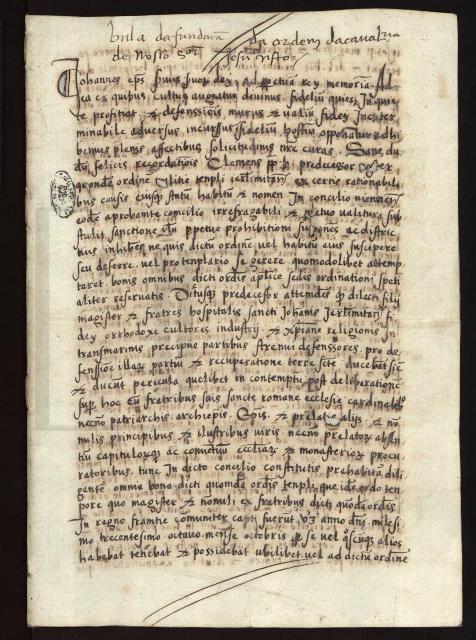 bula da fundaçã da ordem da cavalria
de nosso sõr Jesu xpisto
Johannes eps servus servor dey, ad ppetuã rey memoriã. Ad
ea ex quibus cultus augeatur devinus, fidelium quies
te profitiat, & defenssionis murus & valium fidey Inexter
minabile adversus incursus Infidelium opponatur adhi
bemus plenis affectibus solicitudinis nre curas. Sane du
dũ felicis recordationis Clemens pp predecessor
quondã ordine militie templi ierlimitani ex certis rationabili
bus causis eiusqz statum habitũ & nomen In concilio viennen
eodẽ aprobante concilio irrefragabili & ppetuo valitura sub
stulit sanctione ppetue prohibitioni ac distric
tius inhibẽs ne quis dictũ ordine vel habitũ eius suscipere
seu deferre vel pro templario se gerere quomodolibet attemp
taret. bonis omnibus dicti ordis aplice sedis ordinationi speti
aliter reservatis. predecesor attendẽs qp dilecti filij
magister & fratres hospitalis sancti Johanis Jerlimitani fi
dey orthodoxe cultores industrij & xpiane religionis In
transmarinis precipue partibus strenui defenssores pro de
fensione illarũ partiũ & recuperatione terre scte ducebãt sic
& ducunt pericula quelibet in contemptũ post deliberationẽ
sup hoc cũ fratribus suis sancte romane ecclesie cardinalibo
necnõ patriarchis archiepis. Epis. & prelatis alijs & nõ
nulis principibus & ilustribus viris necnõ prelatorũ absen
tiũ capitulorũqz ac conventuũ eccliarũ & monasteriorũ procu
ratoribus tunc In dicto concilio constitutis prehabitã dili
gentẽ omnia bona dicti quondã ordis templi que ide ordo ten
pore quo magister & nõnuli ex fratribus dicti quõdã ordis
In regno framtie comuniter capti fuerunt vz anno dñi milesi
mo trecentesimo octavo mense octobris p se vel qscumqz alios
habebat tenebat & possidebat ubilibet vel ad dictũ ordinẽ